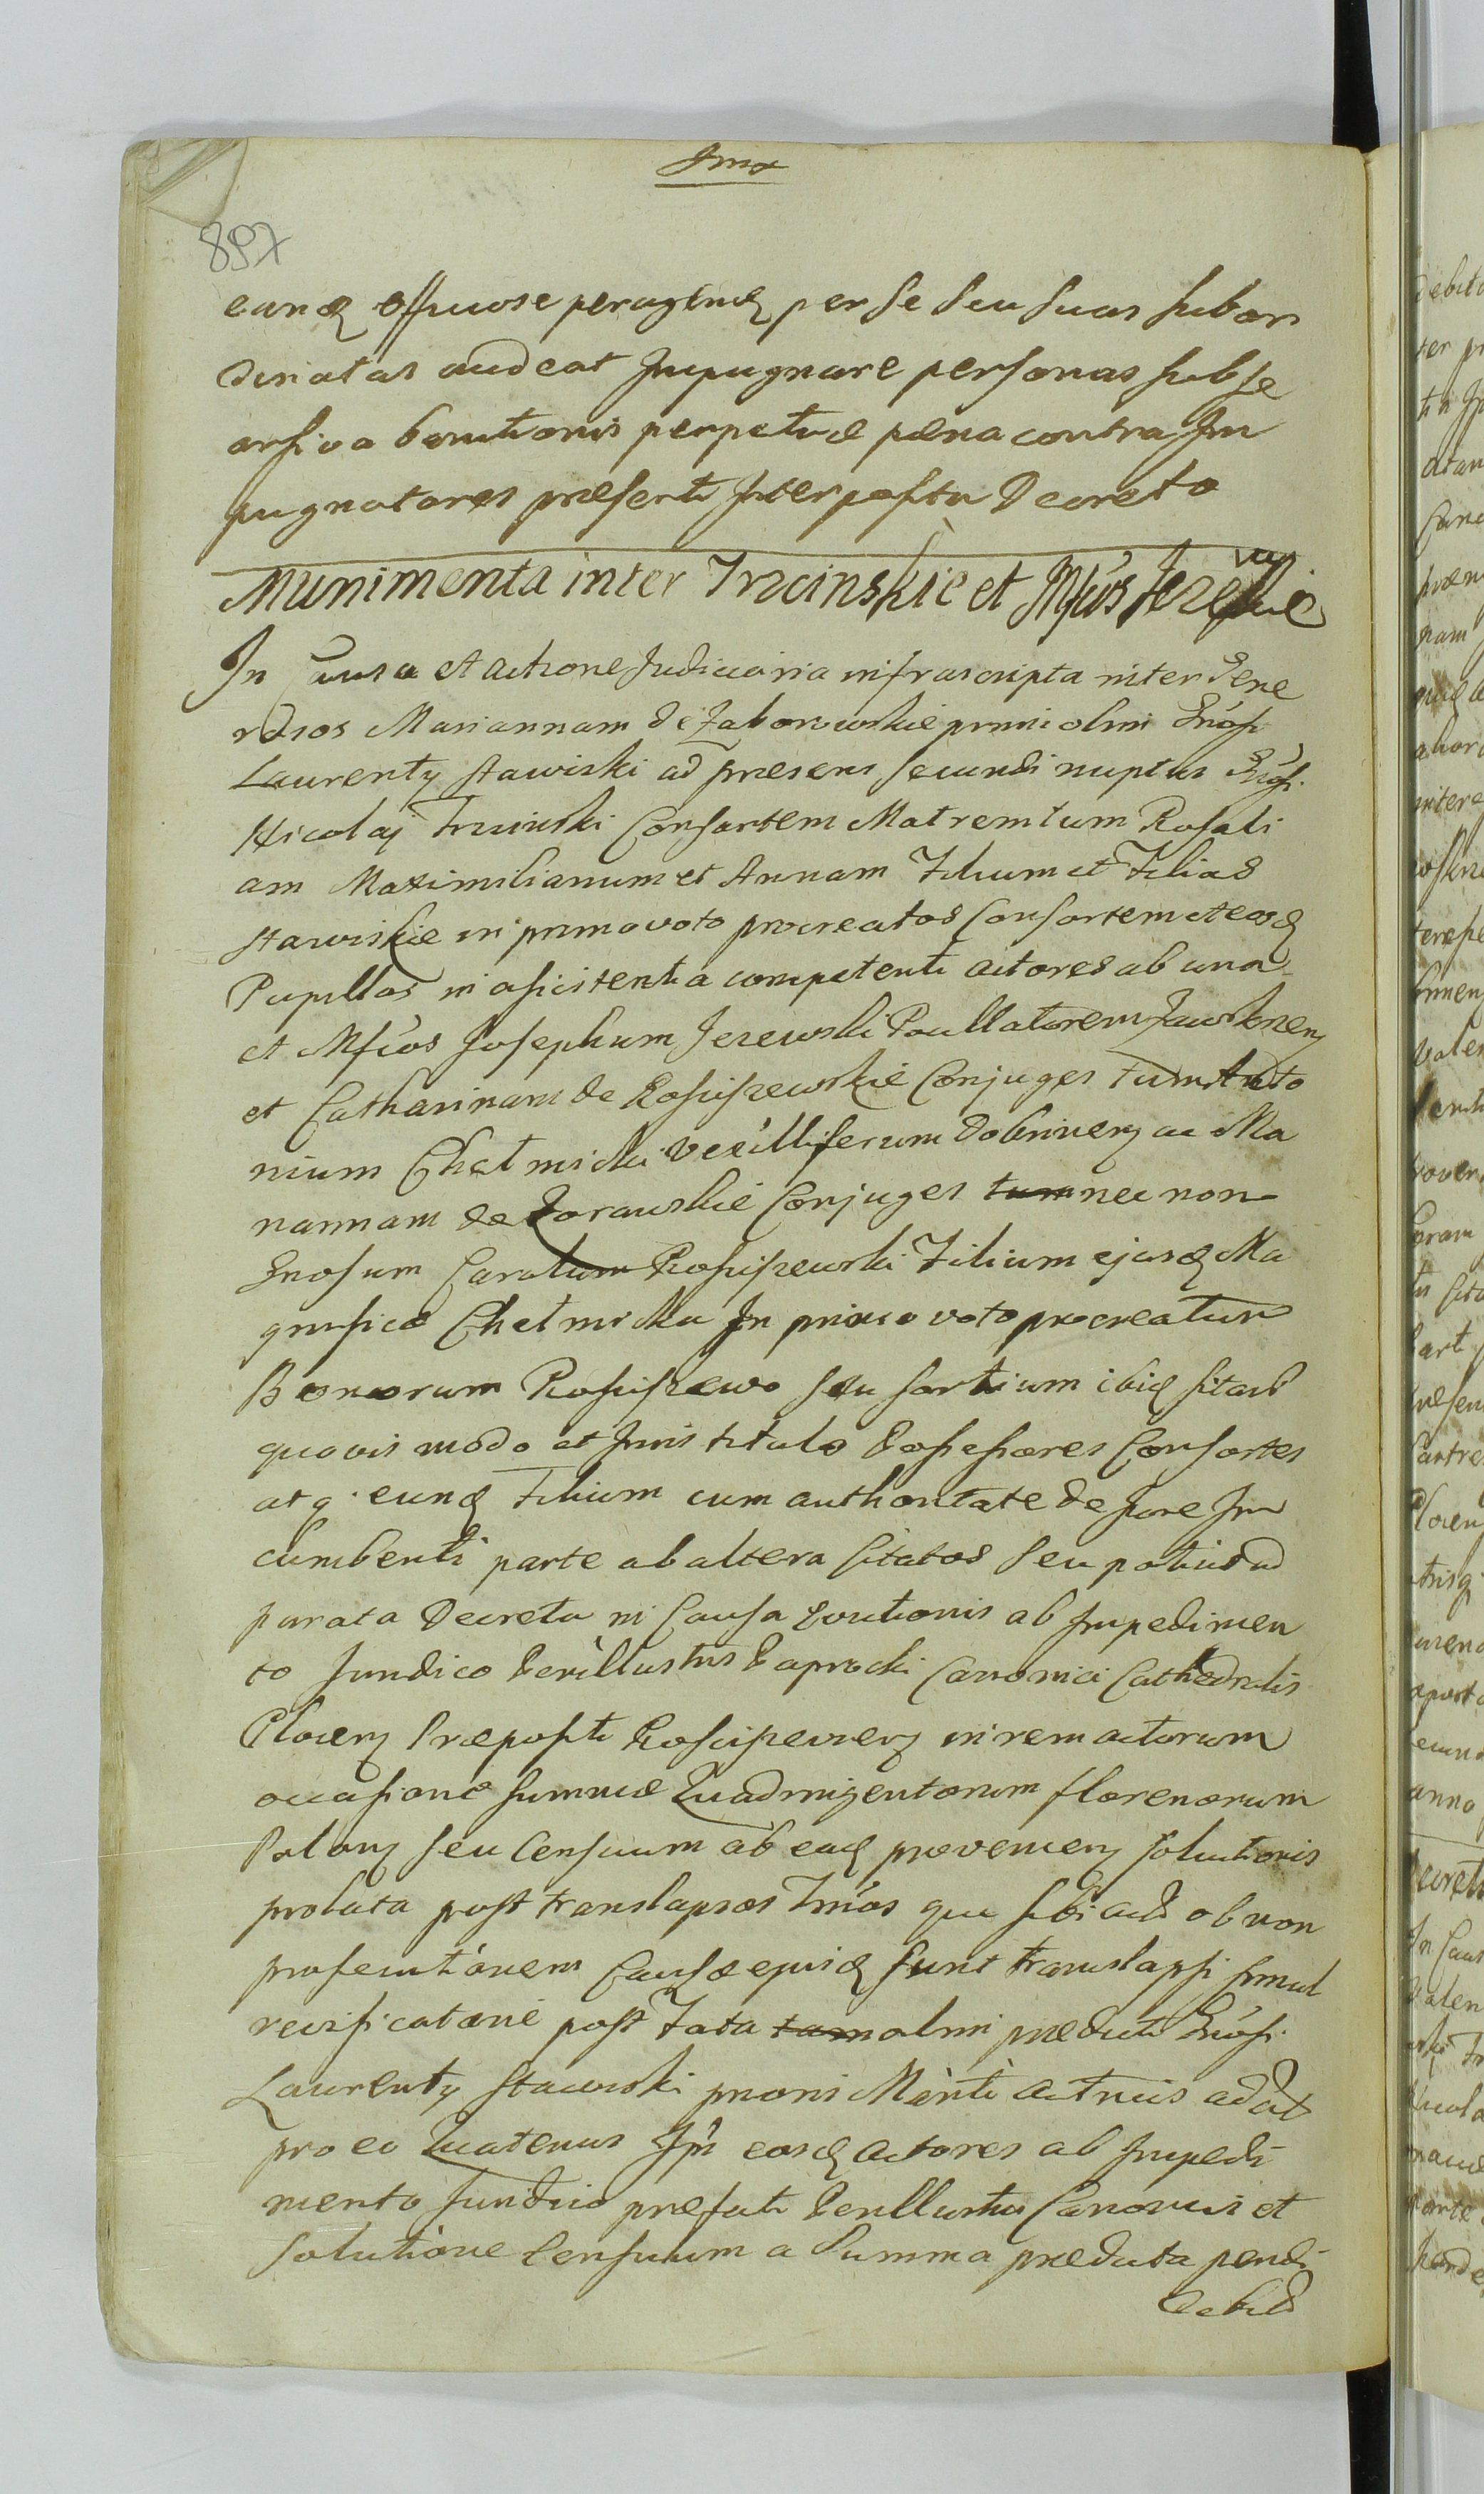 857
eandꝫ offi&uose peragendꝫ per se seu suas subor
dinatas audeat Impugnare personas sub se
cussiva banitionis perpetuæ pæna contra Im
pugnatores præsenti Interposita Decreto
Munimenta inter Trzcinskie et Mfcós Jezewskie
In Causa et actione Judiciaria infrascripta inter Gene
rosos Mariannam de Zaborowskie primi olim Gnósi
Laurenty Stawiski ad præsens secundi nuptus Gnósi
Nicolaj Trzcinski Consortem Matrem tum Rosali
am Maximilianum et Annam Filium et Filias
Stawiskie in primo voto procreatos Consortem et eosdꝫ
Pupillos in assistentia competenti actores ab una
et Mfcós Josephum Jezewski Pocillatorem Zawskrzen
et Catharinam de Rosciszewskie Conjuges tum Anto
nium Chełmicki Vexilliferum Dobrinen ac Ma
riannam de Zorawskie Conjuges tum nec non
Gnosum Carolum Rosciszewski Filium ejusdꝫ Ma
gnificæ Chełmicka In primo voto procreatum
Bonorum Rosciszewo seu sortium ibidꝫ sitarũ
quovis modo et Juris titulo Possessores Consortes
atq eundꝫ Filium cum authoritate de Jure In
cumbenti parte ab altera Citatos seu potius ad
parata Decreta in Causa Evictionis ab Impedimen
to Juridico Perillustris Paprocki Canonici Cathedralis
Plocen Præpositi Rosciszewien in rem actorum
occasione summæ Quadringentorum florenorum
Polon seu Censuum ab eadꝫ provenien solutionis
prolata post translapsos Tmńos qui sibi ad ob non
prosecutionem Causæ ejusdꝫ sunt translapsi simul
reversificatione post Fata tam olim prædicti Gnósi
Laurenty Stawiski prioris Mariti actricis ad
pro eo Quatenus Ipsi eosdꝫ actores ab Impedi
mento Juridico præfati Perillustris Canonici et
Solutione Censuum a Summa prædicta pendi